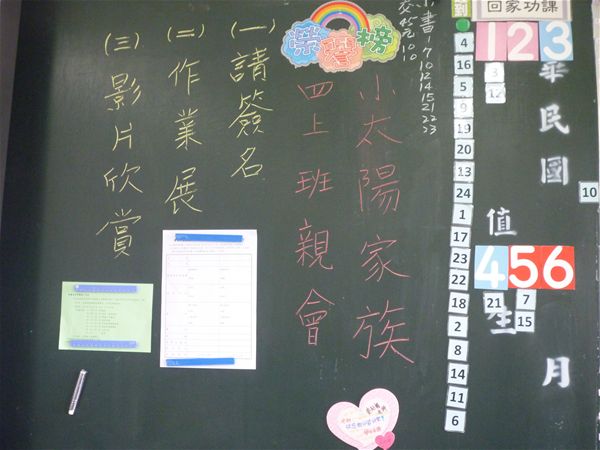 回家功課
到
1 2 3
4
16
5
9
19
20
13
24
1
17
23
22
18
2
8
14
11
6
3
12
華民國
10
值
生
4 5 6
21
7
15
月
小書
7
10
12
14
15
21
22
23
交45元
10
10
榮譽榜
小太陽家族
四上班親會
(一)請簽名
(二)作業展
(三)影片欣賞